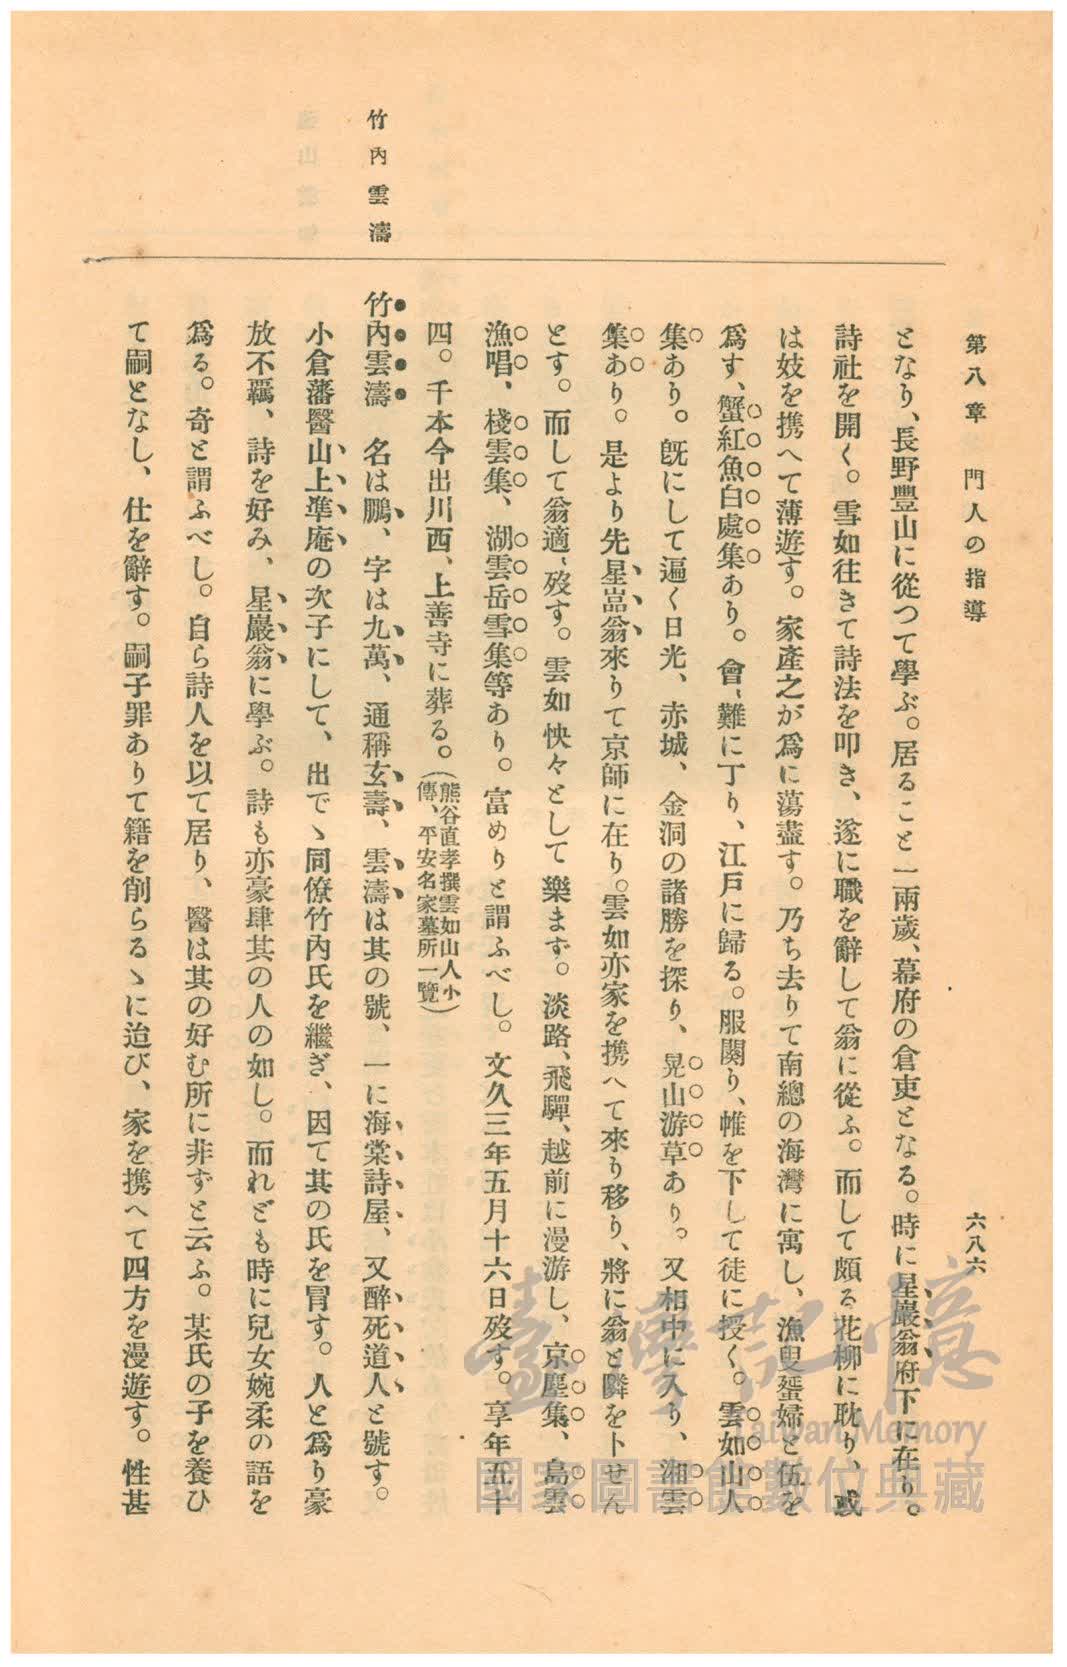 第八章 門人の指導
六八六
となり、長野豐山に從つて學ぶ。居ること一兩歲、幕府の倉吏となる。時に星巖翁府下に在り。
詩社を開く。雪如往きて詩法を叩き、遂に職を辭して翁に從ふ。而して頗る花柳に耽り、或
は妓を携へて薄遊す。家產之が爲に蕩盡す。乃ち去りて南總の海灣に寓し、漁叟蜑婦と伍を
爲す、蟹紅魚白處集あり。會〻難に丁り、江戶に歸る。服闋り、帷を下して徒に授く。雲如山人
集あり。旣にして遍く日光、赤城、金洞の諸勝を探り、晃山游草あり。又相中に入り、湘雲
集あり。是より先星嵓翁來りて京師に在り。雲如亦家を携へて來り移り、將に翁と隣を卜せん
とす。而して翁適〻歿す。雲如怏々として樂まず。淡路、飛驒、越前に漫游し、京塵集、島雲
漁唱、棧雲集、湖雲岳雪集等あり。富めりと謂ふべし。文久三年五月十六日歿す。享年五十
四。千本今出川西、上善寺に葬る。(熊谷直孝撰雲如山人小
傳、平安名家墓所一覽)
竹內雲濤
竹內雲濤 名は鵬、字は九萬、通稱玄壽、雲濤は其の號、一に海棠詩屋、又醉死道人と號す。
小倉藩醫山上準庵の次子にして、出でゝ同僚竹內氏を繼ぎ、因て其の氏を冒す。人と爲り豪
放不羈、詩を好み、星巖翁に學ぶ。詩も亦豪肆其の人の如し。而れども時に兒女婉柔の語を
爲る。奇と謂ふべし。自ら詩人を以て居り、醫は其の好む所に非ずと云ふ。某氏の子を養ひ
て嗣となし、仕を辭す。嗣子罪ありて籍を削らるゝに迨び、家を携へて四方を漫遊す。性甚
臺灣記憶
Taiwan Memory
國家圖書館數位典藏